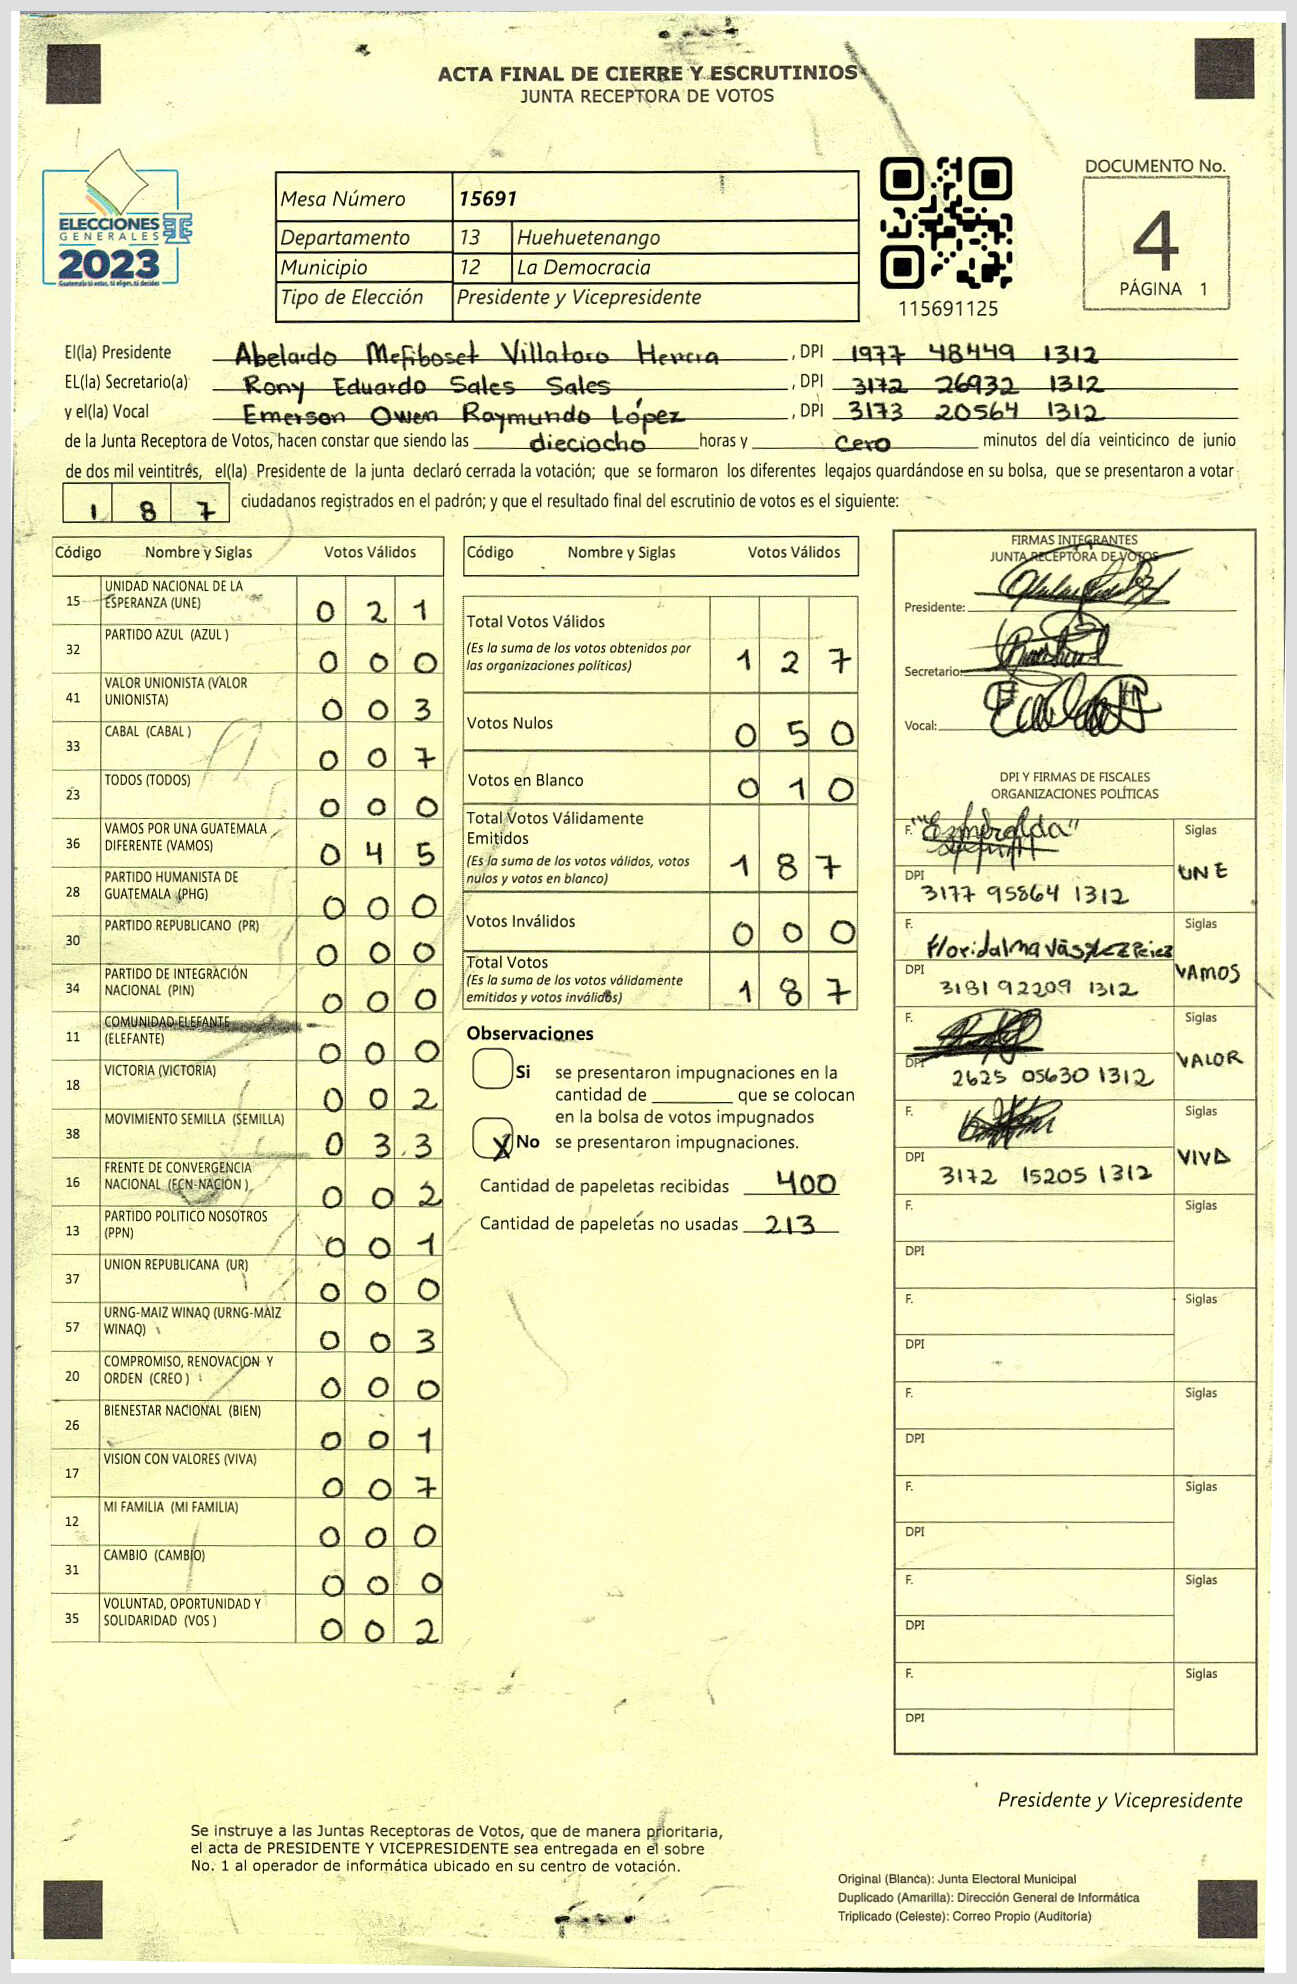 ACTA FINAL DE CIERRE Y ESCRUTINIOS
JUNTA RECEPTORA DE VOTOS
ELECCIONES
GENERALES
2023
Guatemala tú votas, tú eliges, tú decides
Mesa Número 15691
Departamento 13 Huehuetenango
Municipio 12 La Democracia
Tipo de Elección Presidente y Vicepresidente
115691125
DOCUMENTO No.
4
PÁGINA 1
El(la) Presidente Abelardo Mefiboset Villatoro Herrera , DPI 1977 48449 1312
EL(la) Secretario(a) Rony Eduardo Sales Sales , DPI 3172 26932 1312
y el(la) Vocal Emerson Owen Raymundo López , DPI 3173 20564 1312
de la Junta Receptora de Votos, hacen constar que siendo las dieciocho horas y cero minutos del día veinticinco de junio
de dos mil veintitrés, el(la) Presidente de la junta declaró cerrada la votación; que se formaron los diferentes legajos quardándose en su bolsa, que se presentaron a votar
1 8 7 ciudadanos registrados en el padrón; y que el resultado final del escrutinio de votos es el siguiente:
Código Nombre y Siglas Votos Válidos
15 UNIDAD NACIONAL DE LA ESPERANZA (UNE) 0 2 1
32 PARTIDO AZUL (AZUL ) 0 0 0
41 VALOR UNIONISTA (VALOR UNIONISTA) 0 0 3
33 CABAL (CABAL ) 0 0 7
23 TODOS (TODOS) 0 0 0
36 VAMOS POR UNA GUATEMALA DIFERENTE (VAMOS) 0 4 5
28 PARTIDO HUMANISTA DE GUATEMALA (PHG) 0 0 0
30 PARTIDO REPUBLICANO (PR) 0 0 0
34 PARTIDO DE INTEGRACIÓN NACIONAL (PIN) 0 0 0
11 COMUNIDAD ELEFANTE (ELEFANTE) 0 0 0
18 VICTORIA (VICTORIA) 0 0 2
38 MOVIMIENTO SEMILLA (SEMILLA) 0 3 3
16 FRENTE DE CONVERGENCIA NACIONAL (FCN-NACION ) 0 0 2
13 PARTIDO POLITICO NOSOTROS (PPN) 0 0 1
37 UNION REPUBLICANA (UR) 0 0 0
57 URNG-MAIZ WINAQ (URNG-MAIZ WINAQ) 0 0 3
20 COMPROMISO, RENOVACION Y ORDEN (CREO ) 0 0 0
26 BIENESTAR NACIONAL (BIEN) 0 0 1
17 VISION CON VALORES (VIVA) 0 0 7
12 MI FAMILIA (MI FAMILIA) 0 0 0
31 CAMBIO (CAMBIO) 0 0 0
35 VOLUNTAD, OPORTUNIDAD Y SOLIDARIDAD (VOS ) 0 0 2
Código Nombre y Siglas Votos Válidos
Total Votos Válidos
(Es la suma de los votos obtenidos por
las organizaciones políticas) 1 2 7
Votos Nulos 0 5 0
Votos en Blanco 0 1 0
Total Votos Válidamente
Emitidos
(Es la suma de los votos válidos, votos
nulos y votos en blanco) 1 8 7
Votos Inválidos 0 0 0
Total Votos
(Es la suma de los votos válidamente
emitidos y votos inválidos) 1 8 7
Observaciones
Si se presentaron impugnaciones en la
cantidad de ________ que se colocan
en la bolsa de votos impugnados
X No se presentaron impugnaciones.
Cantidad de papeletas recibidas 400
Cantidad de papeletas no usadas 213
FIRMAS INTEGRANTES
JUNTA RECEPTORA DE VOTOS
Presidente:
Secretario:
Vocal:
DPI Y FIRMAS DE FISCALES
ORGANIZACIONES POLÍTICAS
F. "Esmeralda" Siglas
DPI 3177 95864 1312 UNE
F. Floridalma Vásquez Pérez Siglas
DPI 3181 92209 1312 VAMOS
F. Siglas
DPI 2625 05630 1312 VALOR
F. Siglas
DPI 3172 15205 1312 VIVA
F. Siglas
DPI
F. Siglas
DPI
F. Siglas
DPI
F. Siglas
DPI
F. Siglas
DPI
F. Siglas
DPI
Presidente y Vicepresidente
Se instruye a las Juntas Receptoras de Votos, que de manera prioritaria,
el acta de PRESIDENTE Y VICEPRESIDENTE sea entregada en el sobre
No. 1 al operador de informática ubicado en su centro de votación.
Original (Blanca): Junta Electoral Municipal
Duplicado (Amarilla): Dirección General de Informática
Triplicado (Celeste): Correo Propio (Auditoría)